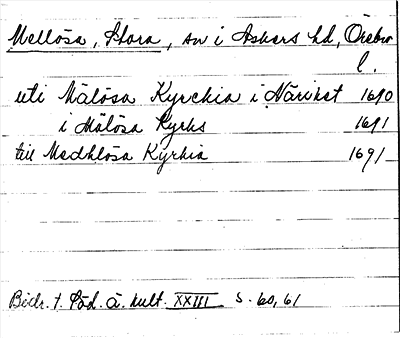 Mellösa, Stora, sn i Askers hd, Örebro
l.
uti Mälösa Kyrckia i Närikst 1690
i Mälösa Kyrks 1691
till Medhlösa Kyrkia 1691
Bidr. t. Söd. å. kult. XXIII s. 60, 61